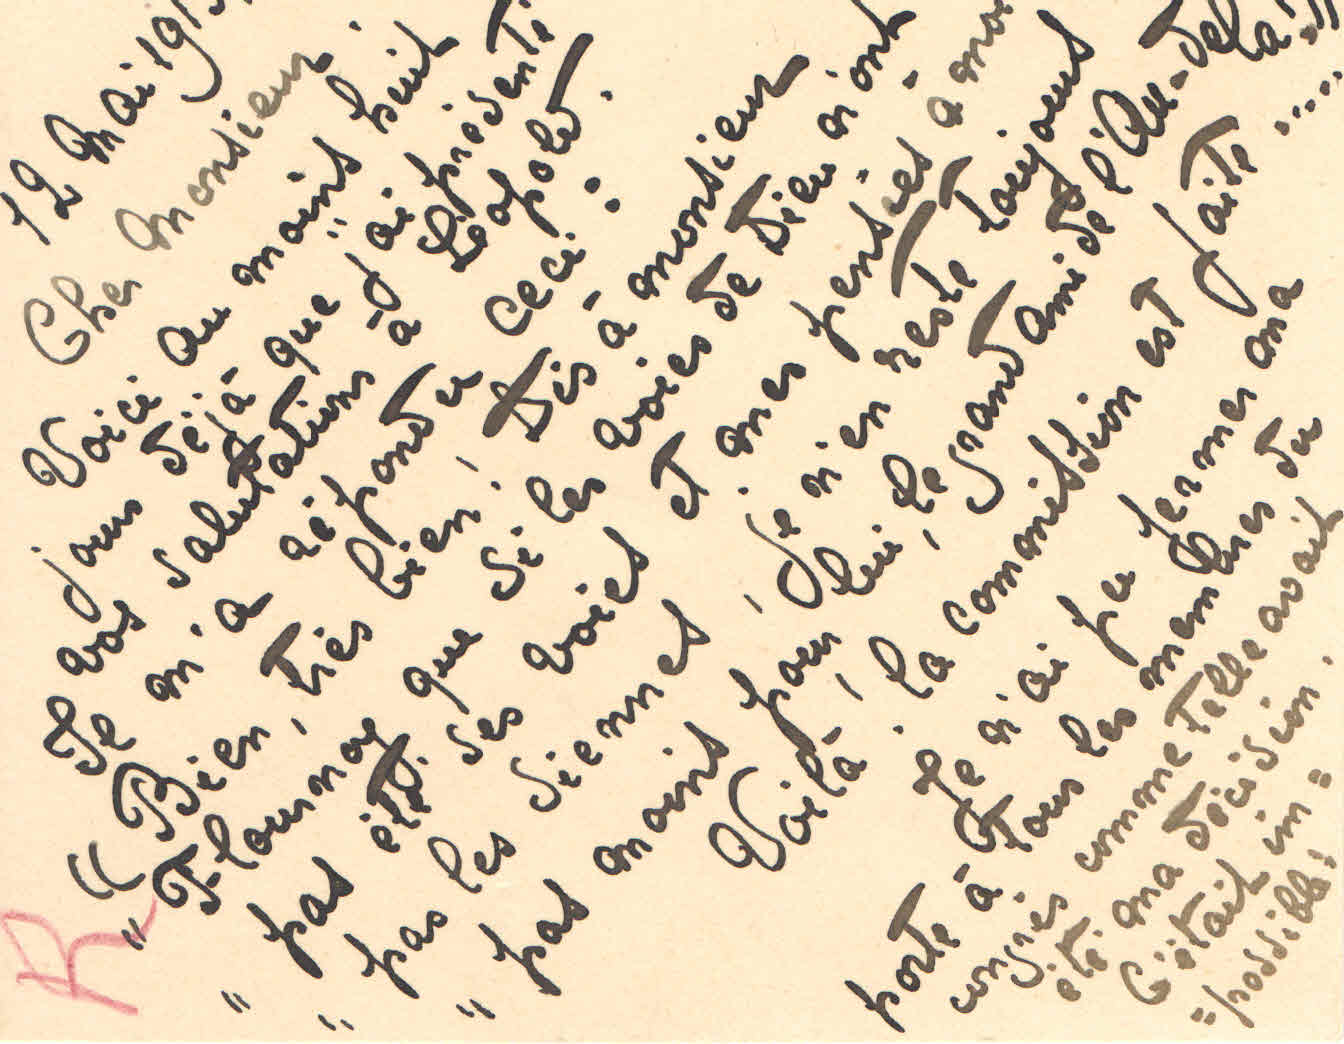 12 Mai 191
Cher Monsieur.
Voici au moins huit
jours déjà que j'ai présenté
vos salutations à Léopold.
Il m'a répondu ceci :
« Bien, très bien, Dis à monsieur
" Flournoy que si les voies de Dieu n'ont
" pas été ses voies et mes pensées à moi
" pas les siennes, je n'en reste toujours
" pas moins pour lui, le grand ami de l'Au-delà! »
Voilà, la commission est faite.....
Je n'ai pu fermer ma
porte à tous les membres du
congrès comme telle avait
été ma décision.
C'était im =
= possible!
R